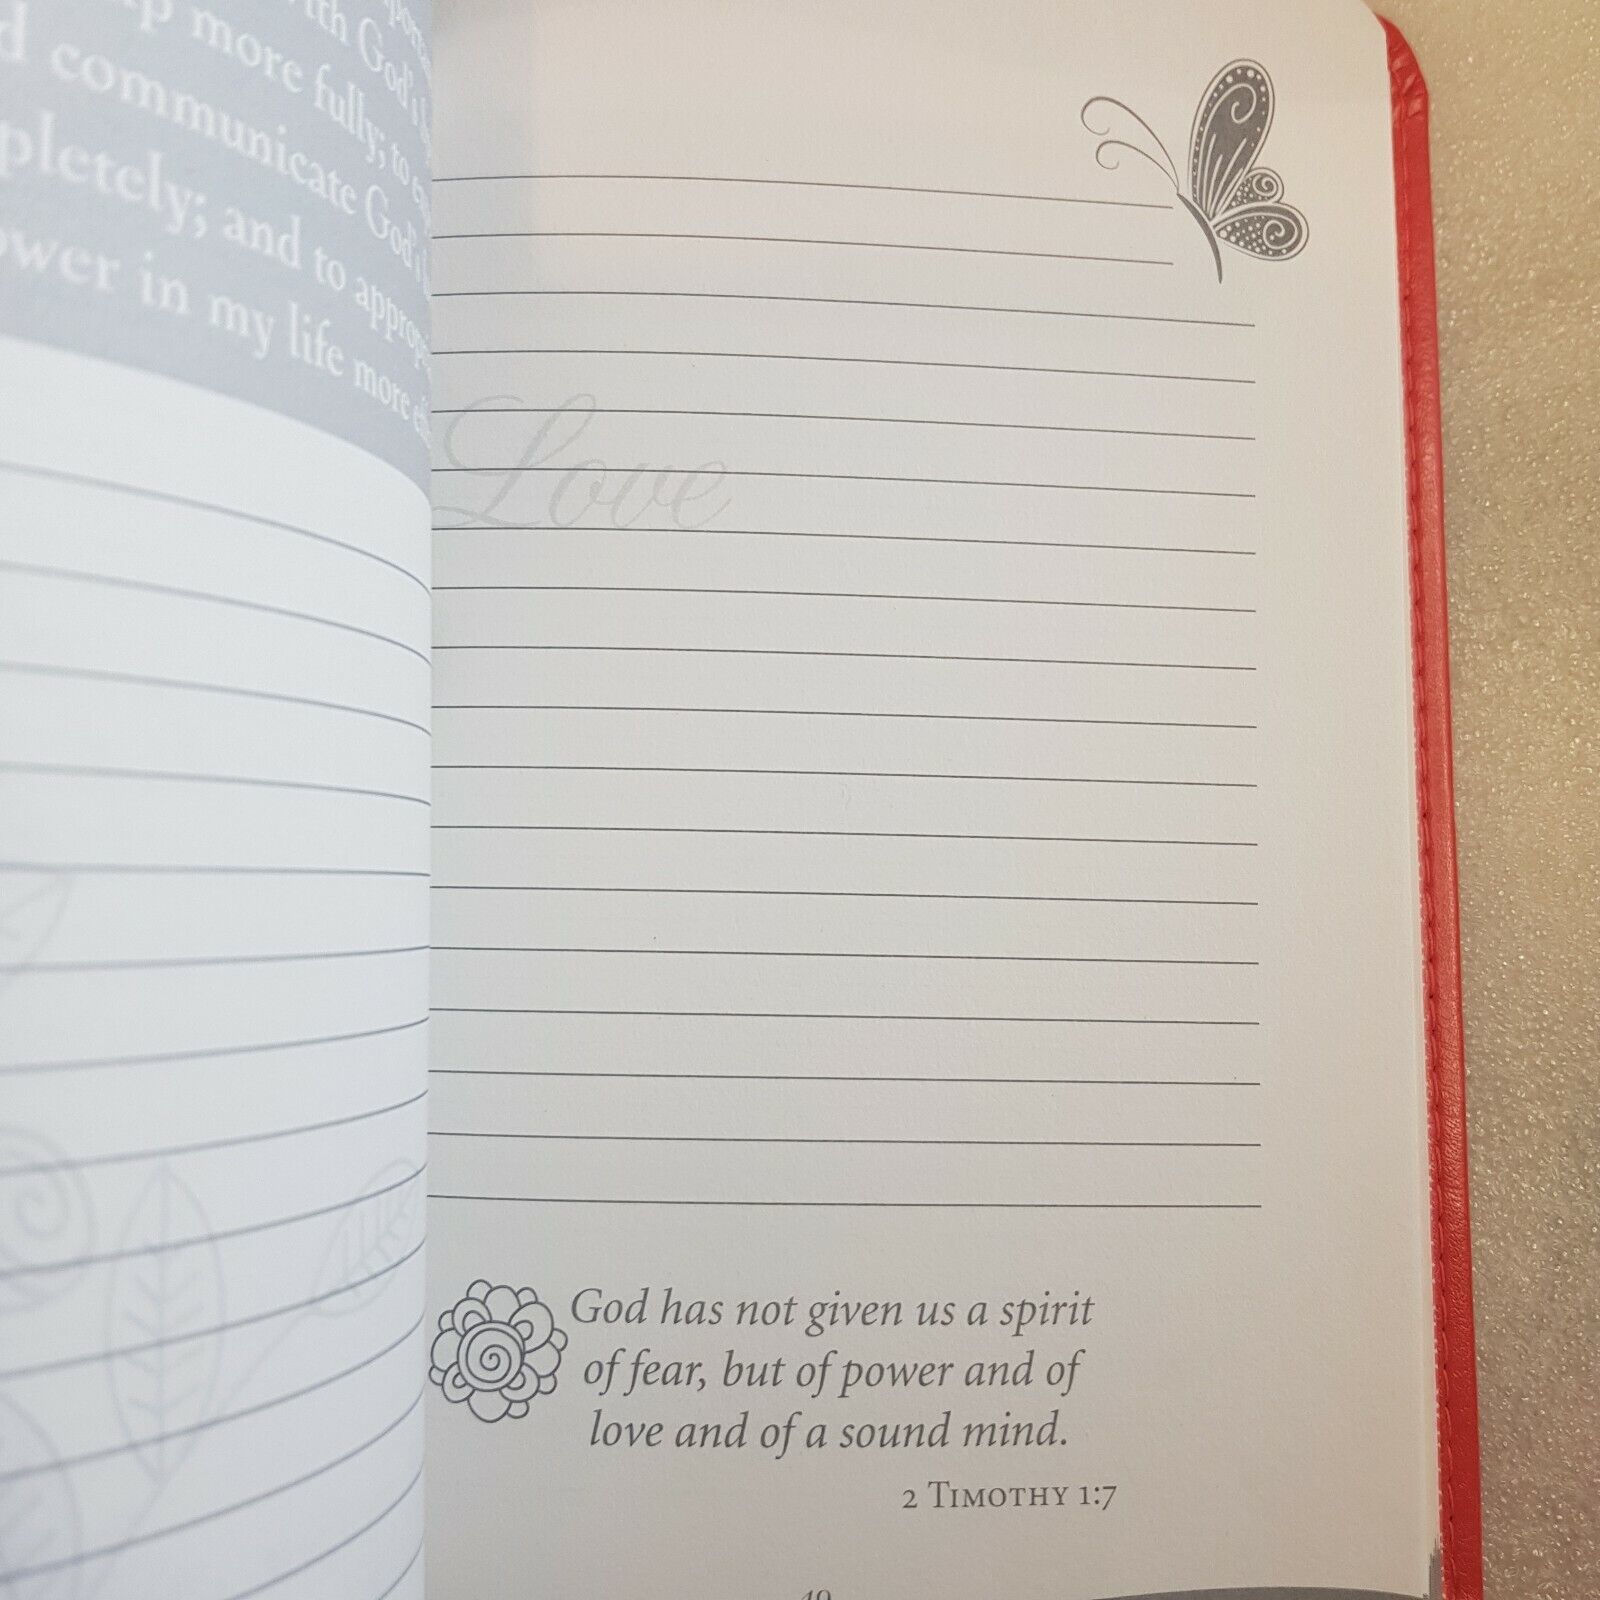 with God's
more fully; to
communicate God's
and to
in my life more
Love
God has not given us a spirit
of fear, but of power and of
love and of a sound mind.
2 TIMOTHY 1:7